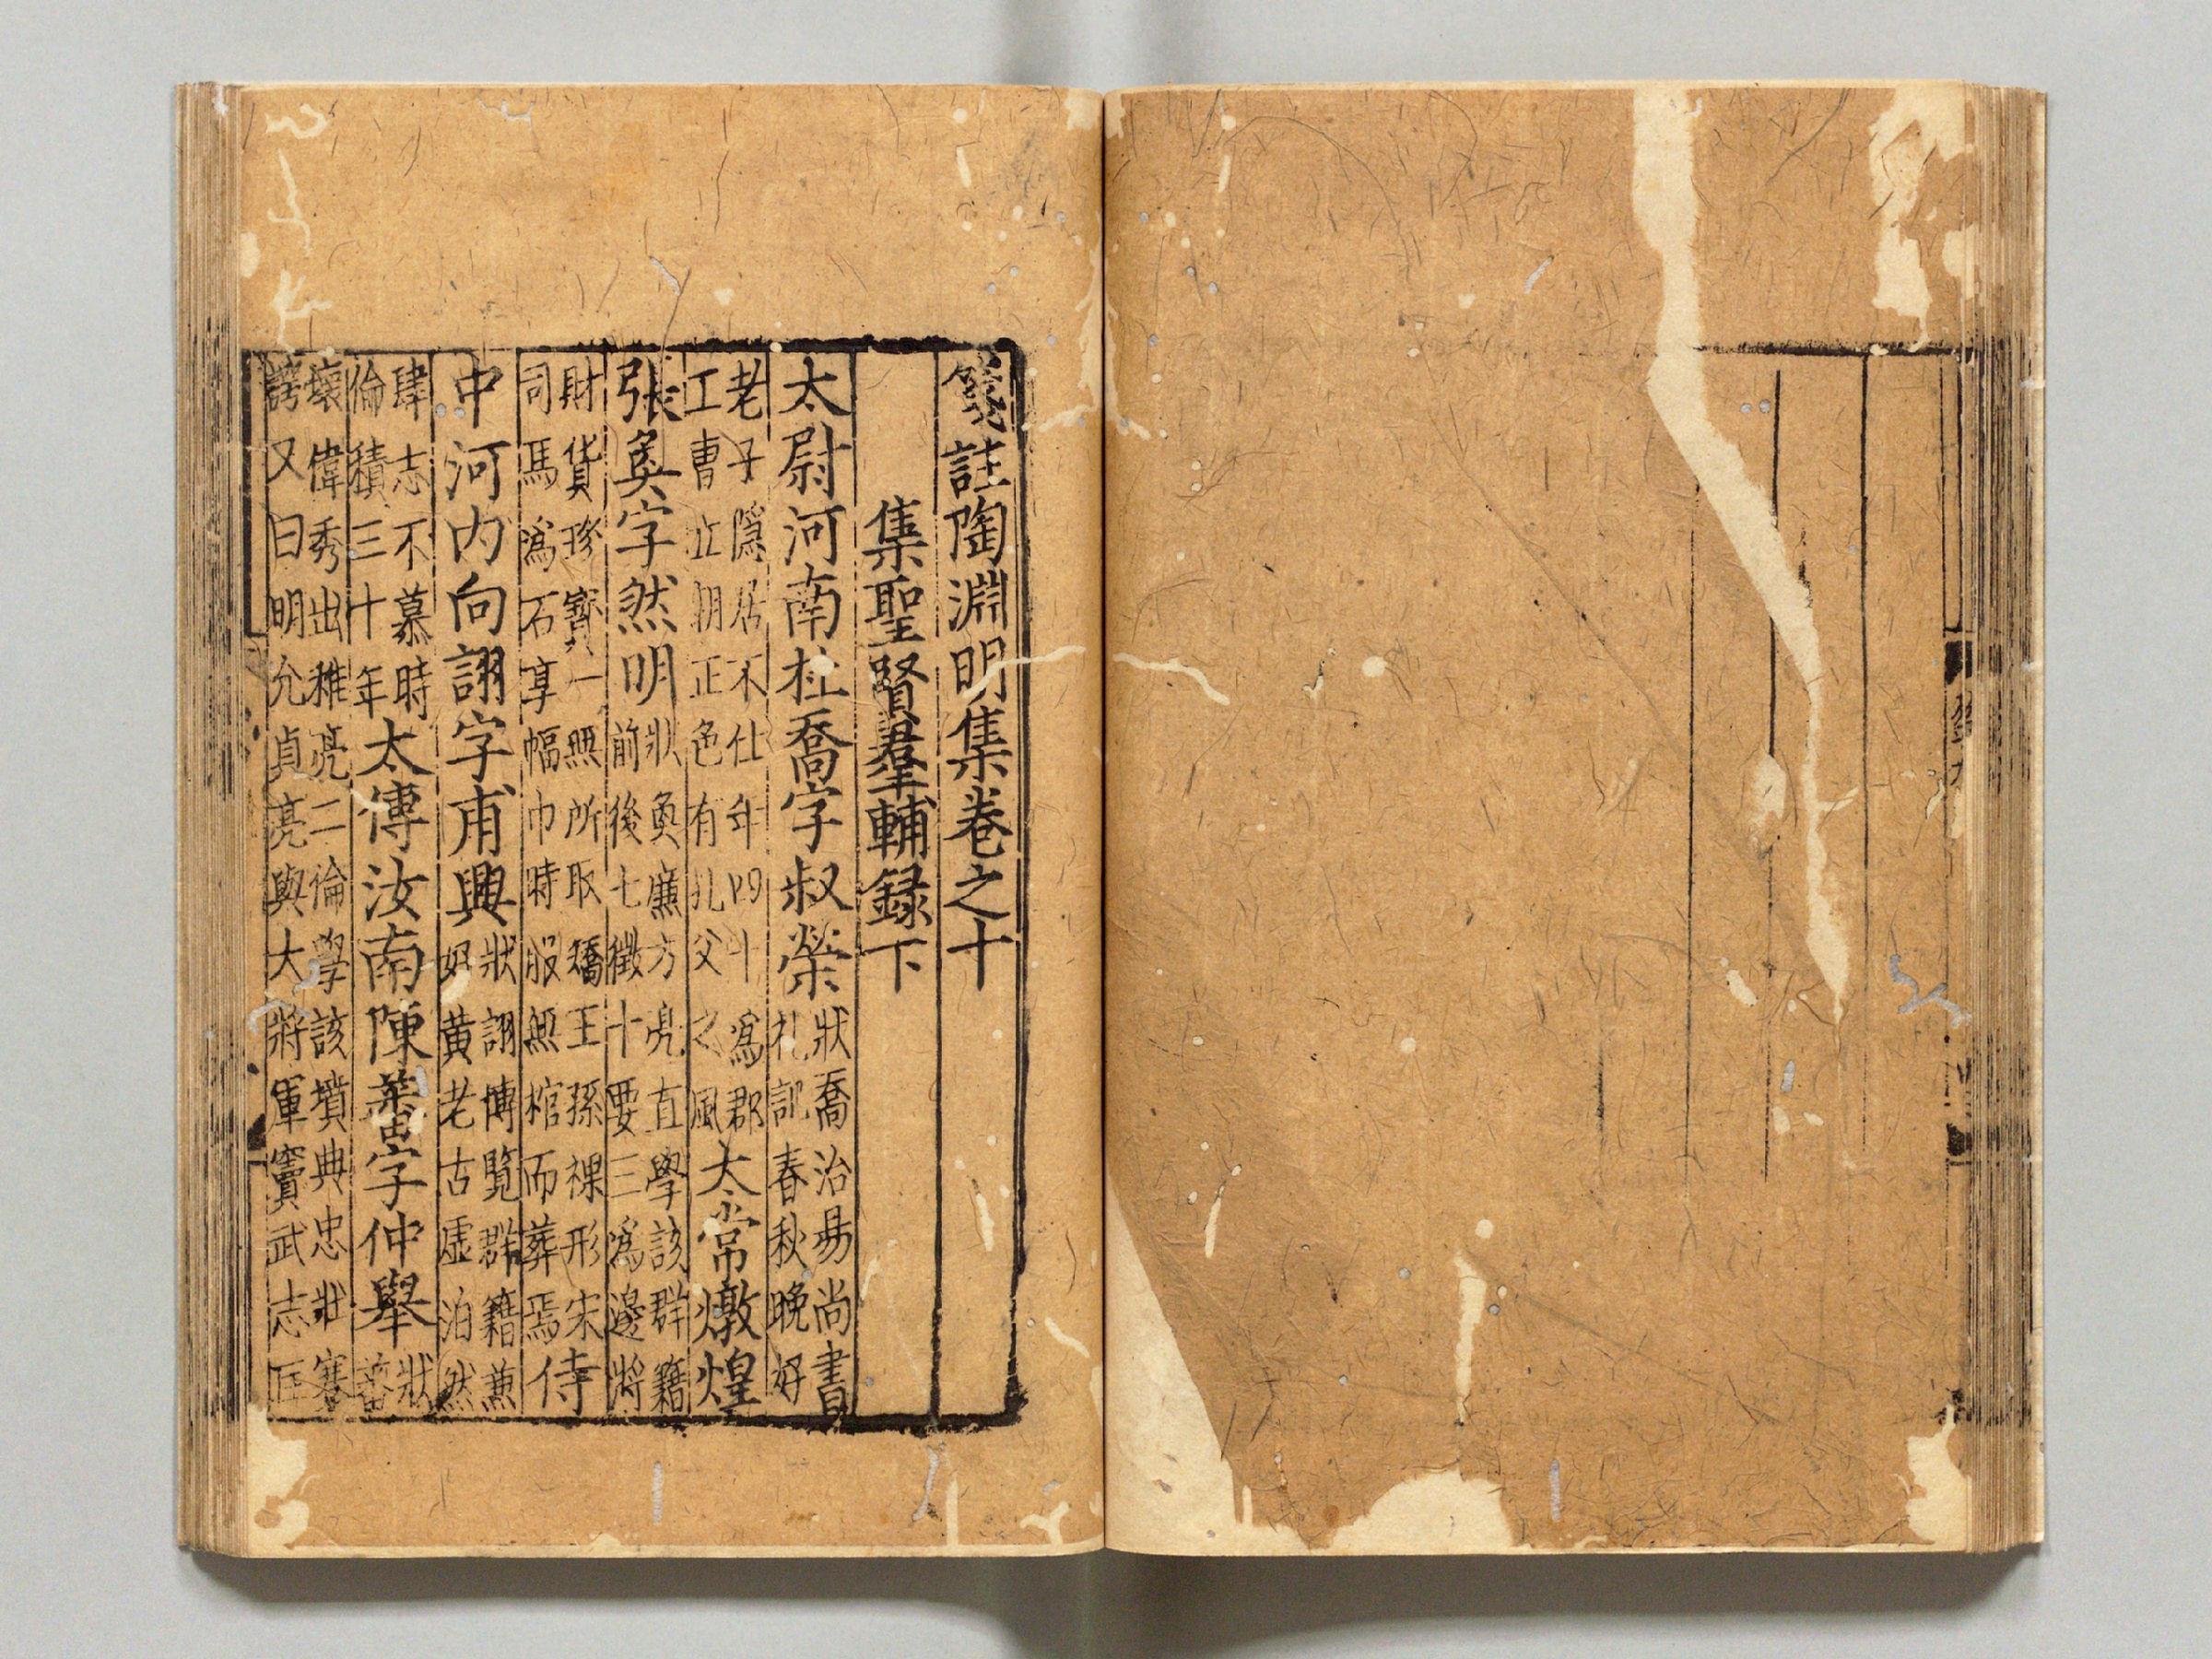 箋註陶淵明集卷之十
集聖賢羣輔録下
太尉河南杜喬字叔榮狀喬治易尚書
礼記春秋晚好
老子隱居不仕年四十爲郡
工曹立朝正色有孔父之風太常燉煌
張奐字然明狀奐廉方亮直學該群籍
前後七徵十要三爲邊將
財貨珍寶一無所取矯王孫裸形宋
司馬爲石享幅巾時服無棺而葬焉侍
中河内向詡字甫興狀詡博覽群籍兼
好黄老古虛泊然
肆志不慕時
倫積三十年太傅汝南陳蕃字仲舉狀
蕃
壞偉秀出雅亮二倫學該墳典忠壯蹇
諤又曰明允貞亮與大將軍竇武志匡